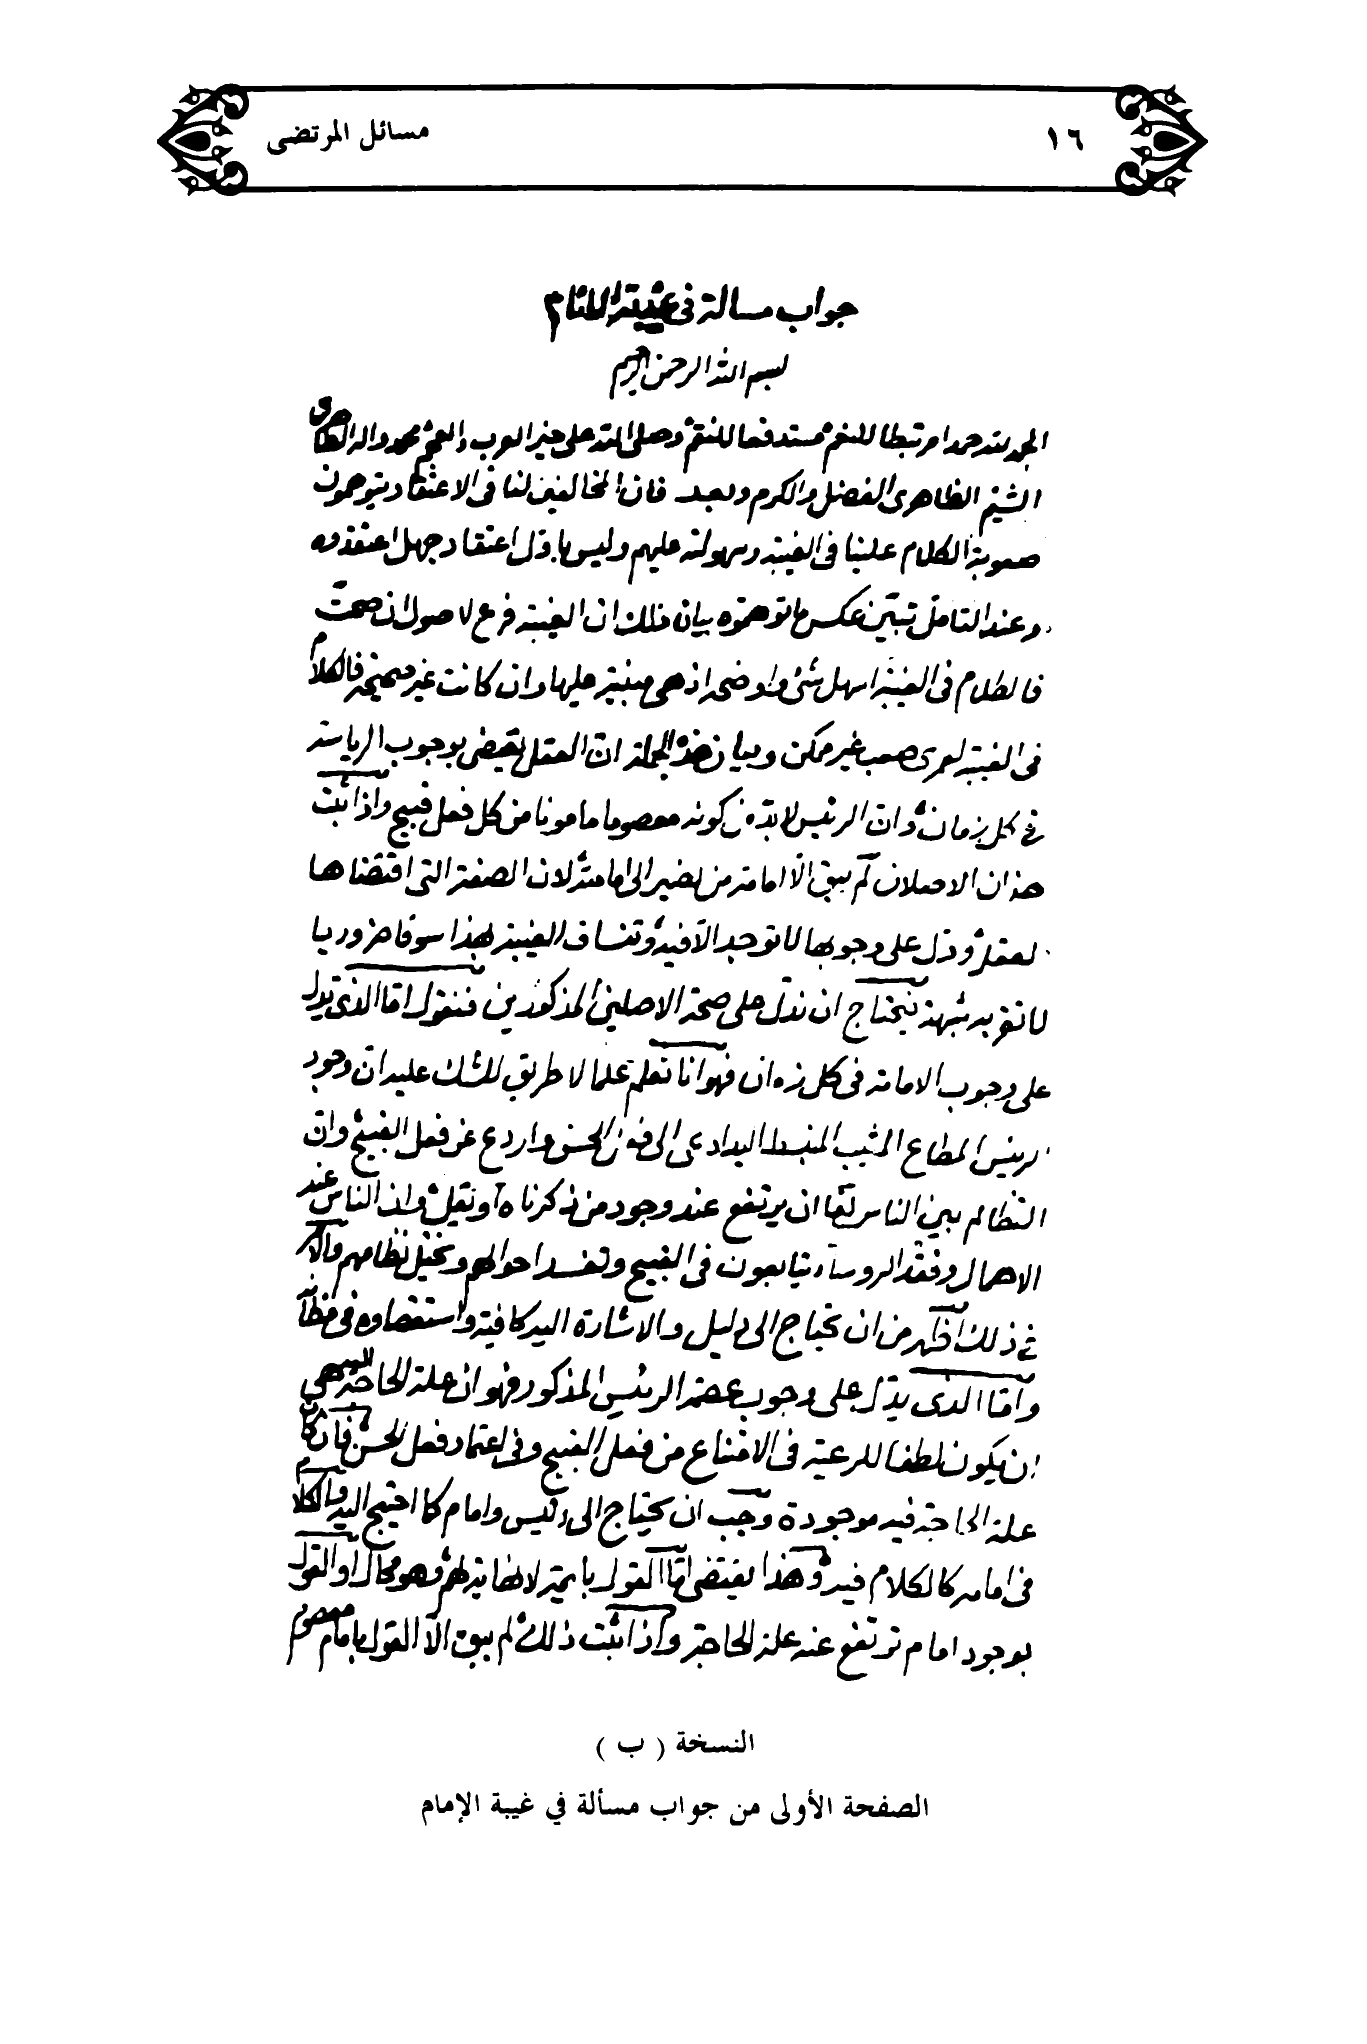 ١٦
مسائل المرتضى
جواب مسالة فى غيبة الامام
بسم الله الرحمن الرحيم
الحمد لله حمدا مرتبطا للنعم مستدفعا للنقم وصلى الله على خير العرب والعجم محمد واله الطاهرى
الشيم الظاهرى الفضل والكرم وبعد فان المخالفين لنا فى الاعتقاد يتوهمون
صعوبة الكلام علينا فى الغيبة وسهولته عليهم وليس باول اعتقاد جهل اعتقدوه
وعند التامل تبين عكس ما توهموه بيان ذلك ان الغيبة فرع لاصول ان صحت
فالكلام فى الغيبة اسهل شئ واوضحه اذ هى مبنية عليها وان كانت غير صحيحة فالكلام
فى الغيبة لعمرى صعب غير ممكن وبيان هذه الجملة ان العقل يقضى بوجوب الرياسة
فى كل زمان وان الرئيس لابد من كونه معصوما مامونا من كل فعل قبيح واذا ثبت
هذان الاصلان لم يبق الا امامة من نضير الى امامته لان الصفة التى اقتضاها
لعقل ودل على وجوبها لا توجد الا فيه وتنساق الغيبة بهذا سوقا ضروريا
لا تقربه شبهة فيحتاج ان ندل على صحة الاصلين المذكورين فنقول اما الذى يدل
على وجوب الامامة فى كل زمان فهو انا نعلم علما لا طريق للشك عليه ان وجود
لرئيس المطاع المثيب المنبسط اليد ادعى الى فعل الحسن واردع عن فعل القبيح وان
التظالم بين الناس اما ان يرتفع عند وجود من ذكرناه او يقل وان الناس عند
الاهمال وفقد الروساء يتابعون فى القبيح وتفسد احوالهم ويختل نظامهم والامر
فى ذلك اظهر من ان يحتاج الى دليل والاشارة اليه كافية واستقصاوه فى مظانه
واما الذى يدل على وجوب عصمة الرئيس المذكور فهو ان علة الحاجة اليه هى
ان يكون لطفا للرعية فى الامتناع من فعل القبيح وفى اعتماد فعل الحسن فان كانت
علة الحاجة فيه موجودة وجب ان يحتاج الى رئيس وامام كما احتيج اليه والكلام
فى امامه كالكلام فيه وهذا يقتضى اما القول بايمة لا نهاية لهم وهو محال او القول
بوجود امام ترتفع عنه علة الحاجة واذا ثبت ذلك لم يبق الا القول بامام معصوم
النسخة ( ب )
الصفحة الأولى من جواب مسألة في غيبة الإمام